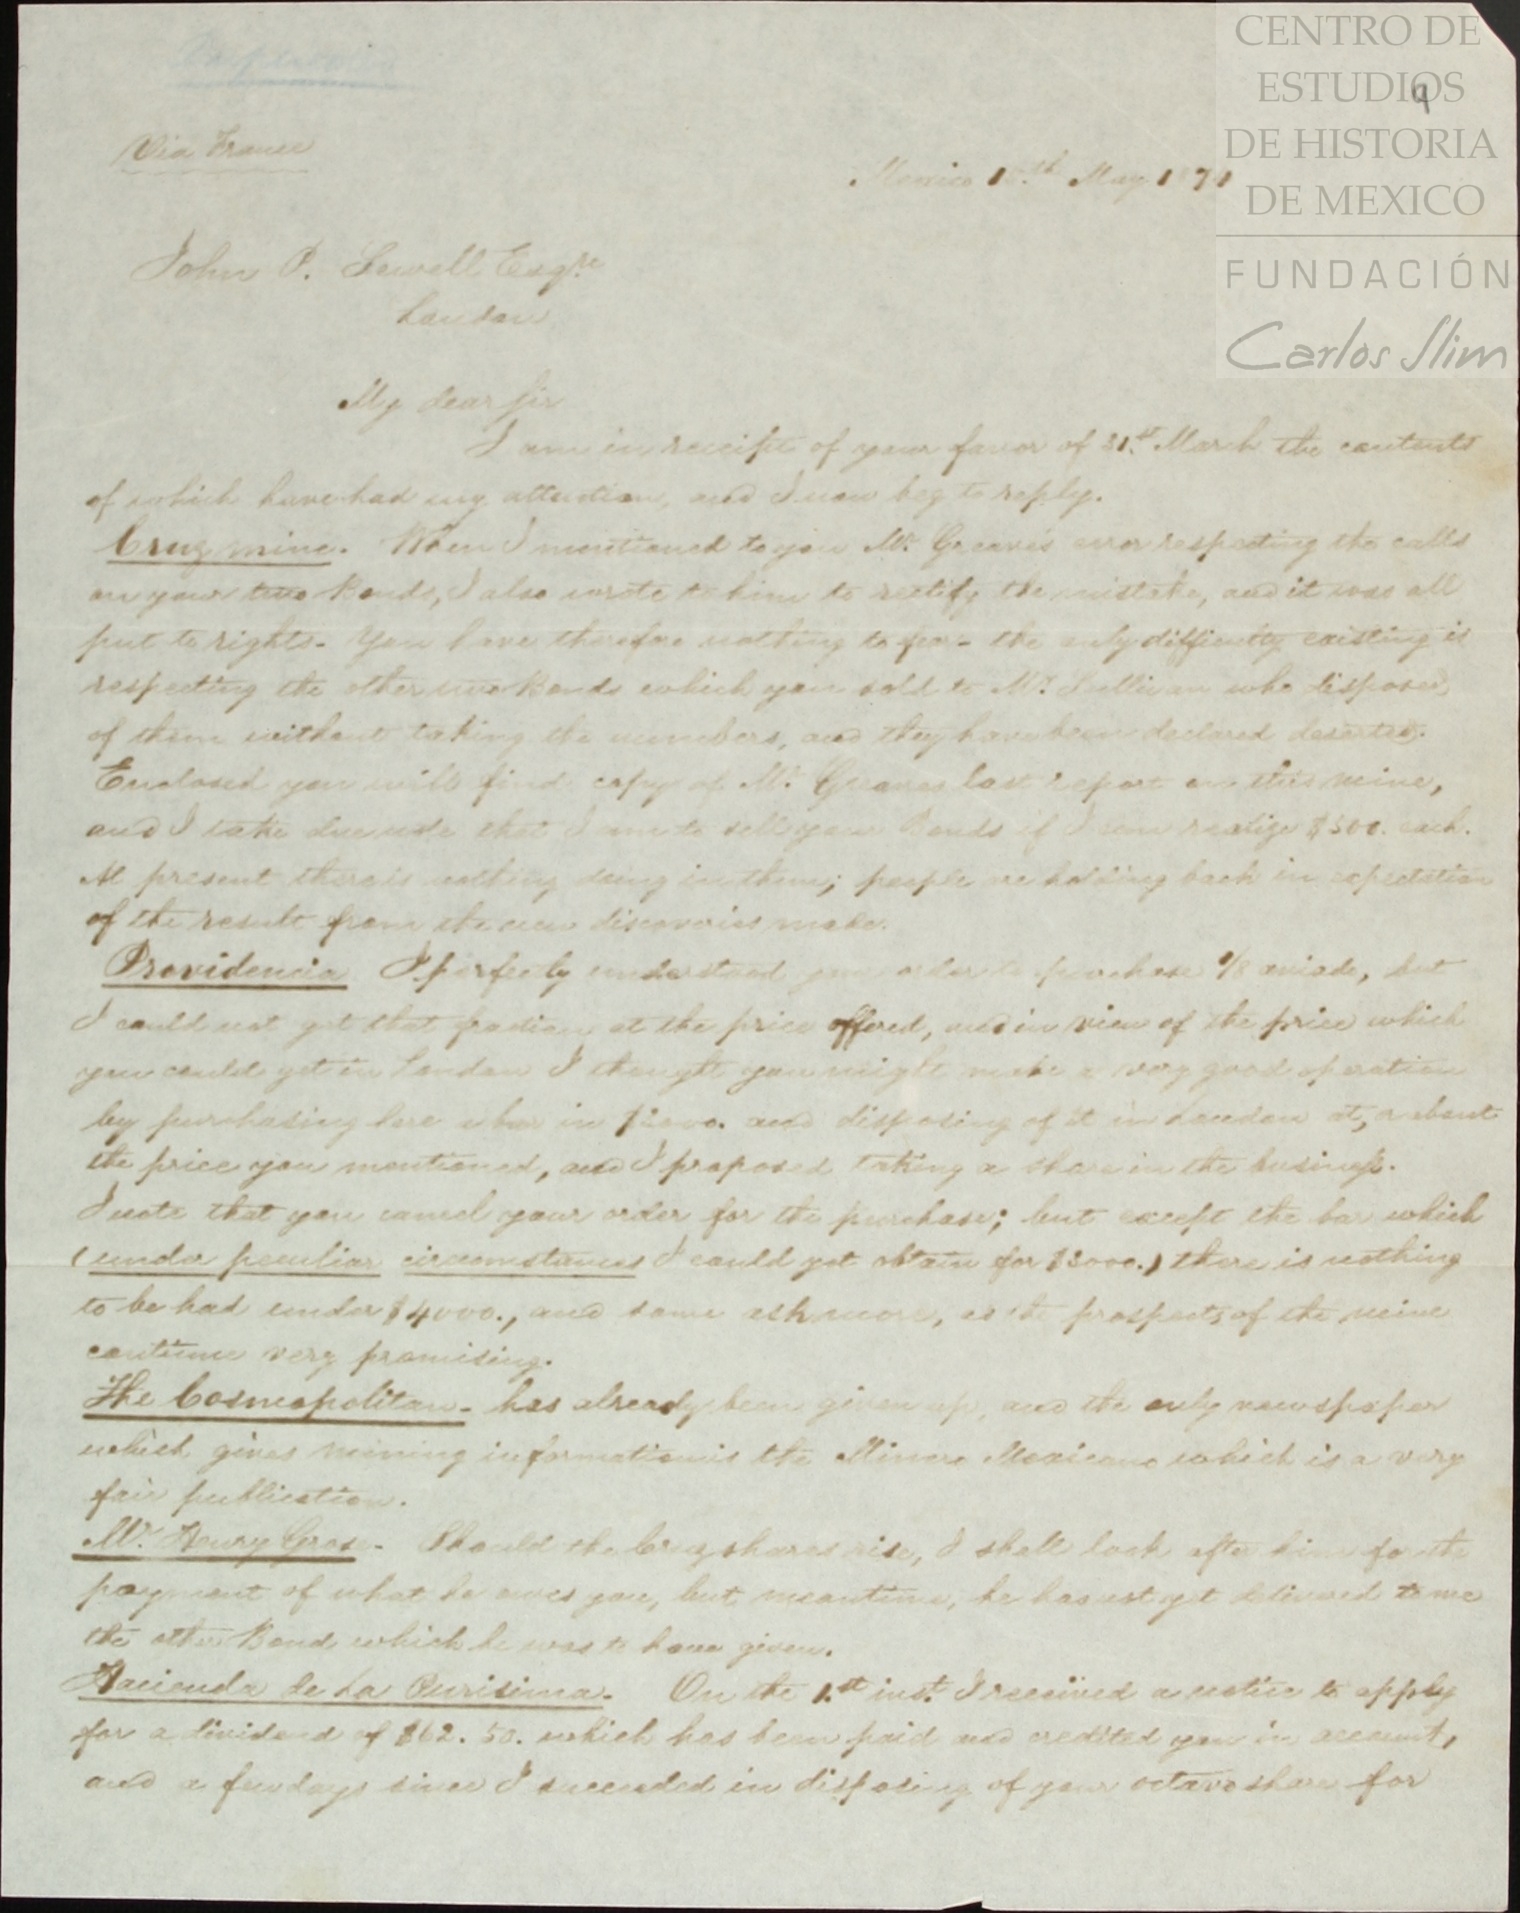 CENTRO DE
ESTUDIOS
DE HISTORIA
DE MEXICO
FUNDACIÓN
Carlos Slim
9
Via France
Mexico May
John P. Sewell Esqre
London
My dear Sir
I am in receipt of your favor of 31.st March the contents
of which have had my attention, and I now beg to reply.
Cruz mine. When I mentioned to you Mr. Greaves error respecting the calls
on your two Bonds, I also wrote to him to rectify the mistake, and it was all
put to rights. You have therefore nothing to fear - the only difficulty existing is
respecting the other two Bonds which you sold to Mr. Sullivan who disposed
of them without taking the numbers, and they have been declared deserted.
Enclosed you will find copy of Mr. Greaves last report on this mine,
and I take due note that I am to sell your Bonds if I can realize $500. each.
At present there is nothing doing in them; people are holding back in expectation
of the result from the new discoveries made.
Providencia I perfectly understood your order to purchase 1/8 aviada, but
I could not get that fraction at the price offered, and in view of the price which
you could get in London I thought you might make a very good operation
by purchasing here a bar in $3000. and disposing of it in London at, or about
the price you mentioned, and I proposed taking a share in the business.
I note that you cancel your order for the purchase; but except the bar which
(under peculiar circumstances I could get obtain for $3000.) there is nothing
to be had under $4000., and some ask more, as the prospects of the mine
continue very promising.
The Cosmopolitan - has already been given up, and the only newspaper
which gives mining information is the Minero Mexicano which is a very
fair publication.
Mr. Henry Grose - Should the Cruz shares rise, I shall look after him for the
payment of what he owes you, but meantime, he has not yet delivered to me
the other Bond which he was to have given.
Hacienda de La Purisima. On the 1.st inst. I received a notice to apply
for a dividend of $62.50. which has been paid and credited you in account,
and a few days since I succeeded in disposing of your octavo share for